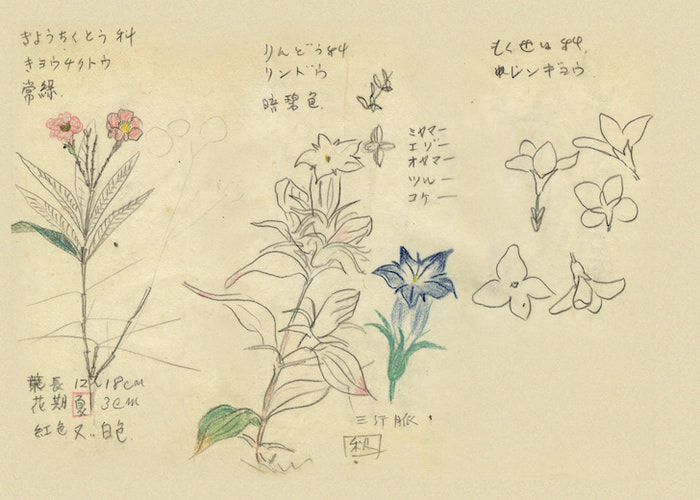 きょうちくとう科
キヨウチクトウ
常緑
葉長 12 18cm
花期 夏 3cm
紅色又ハ白色
りんどう科
リンドウ
暗碧色
ミヤマー
エゾー
オヤマー
ツルー
コケー
三行脈
秋
もくせい科
レンギョウ